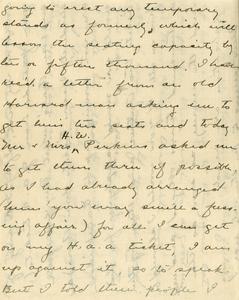 going to erect any temporary
stands as formerly, which will
lessen the seating capacity by
ten or fifteen thousand. I have
rec'd a letter from an old
Harvard man asking me to
get him two seats and today
H.W.
Mr & Mrs Perkins asked me
to get them them if possible.
As I had already arranged
(hence you may smile a pass-
ing affair) for all I can get
on my H.a.a ticket, I am
up against it so to speak
But I told these people I